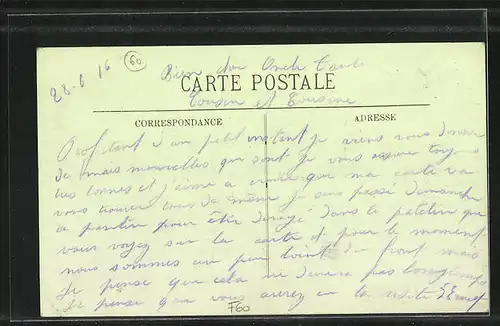 28-6 16
60
Bien cher Oncle Tante
CARTE POSTALE
Cousin et Cousine
CORRESPONDANCE
ADRESSE
Profitant d'un petit instant je viens vous donner
de mes nouvelles qui sont je vous assure toujours
très bonnes et j'aime a croire que ma carte va
vous trouver tous de même je suis passé dimanche
a pantin pour être dirigé dans le patelin que
vous voyez sur la carte et pour le moment
nous sommes un peu loin du front mais
je pense que cela ne durera pas longtemps
je pense que vous avez eu la visite
F60